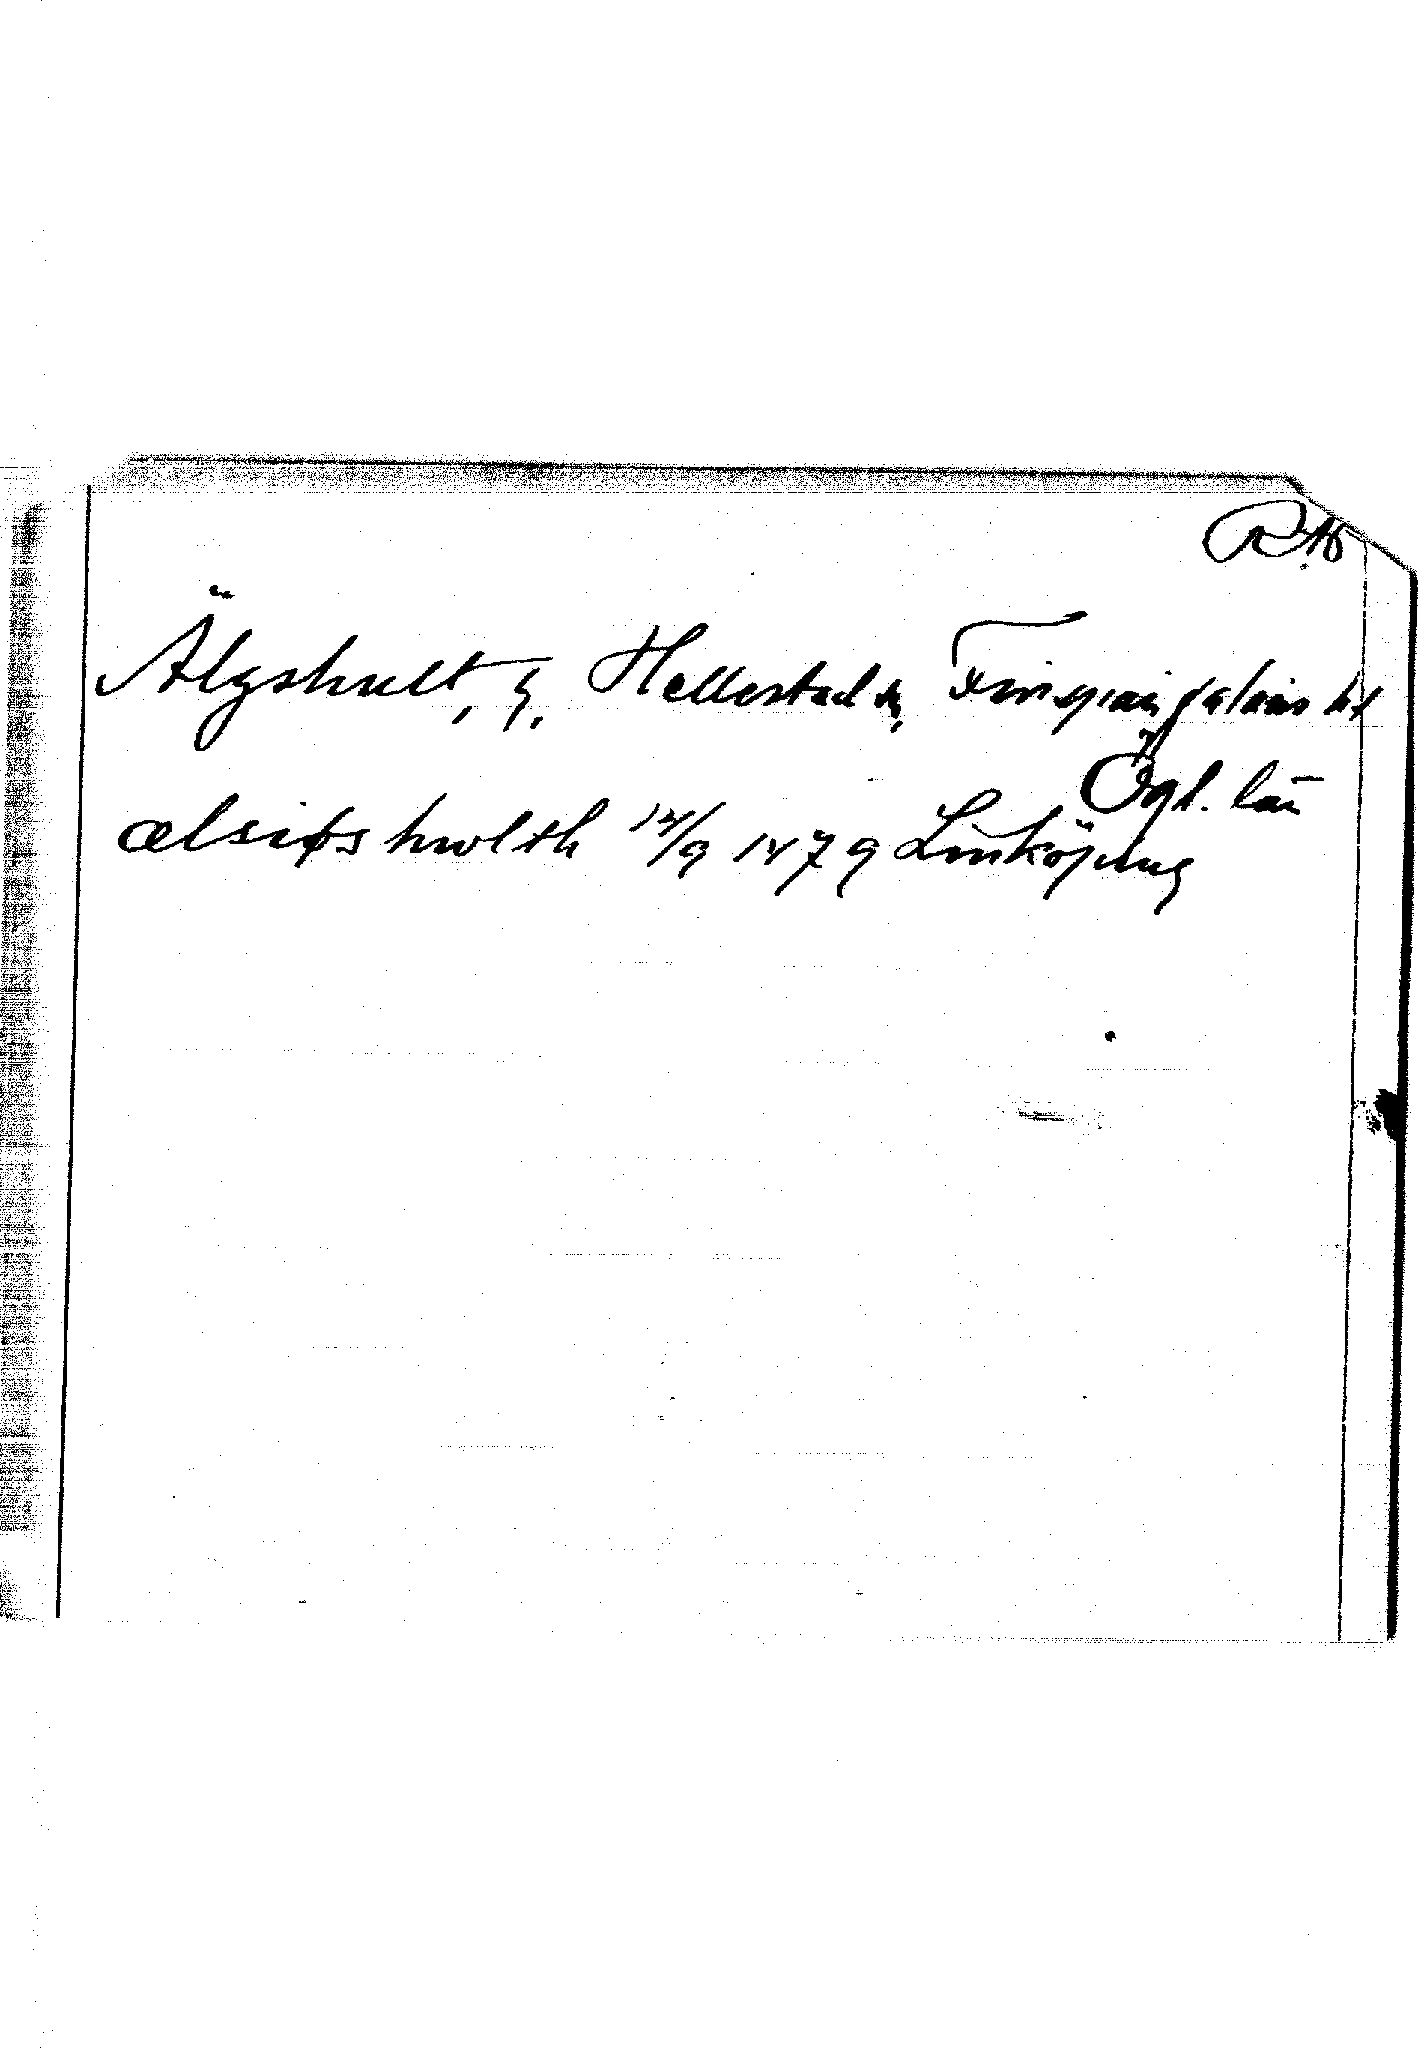 RAp
Älgshult, g. Hellestad sn, Finspångaläns hd
Ögl. län
ælsiøs hwlth 12/9 1479 Linköping